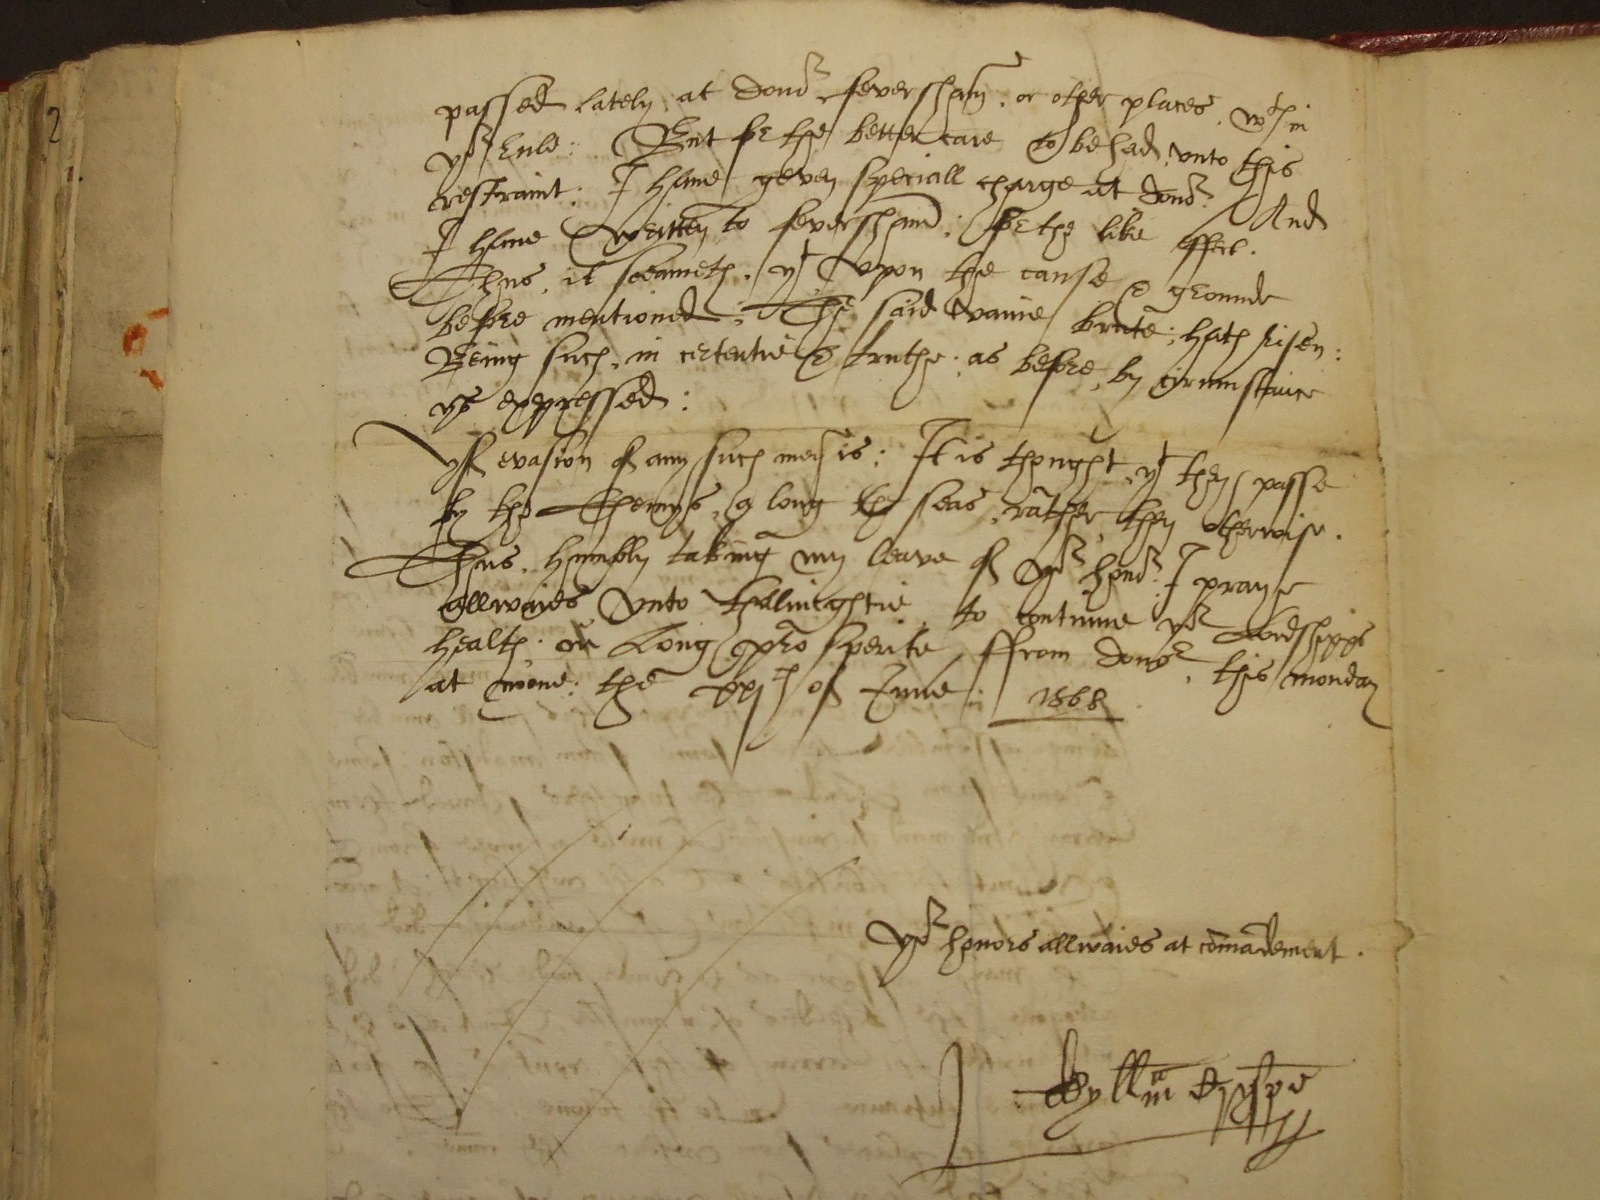 passed lately, at Dovr feversham, or other places, wth in
yor Rule: But for the better care to be had, unto this
restraint: I have geven speciall charge at Dovr: And
I have written to feversham: for the like effect.
Thus, it seameth, yt upon the cause & grounde
before mentioned: The said vaine brute: hath risen:
Being such, in certentie & truthe: as before, by circumstance
ys expressed:
yf evasion of any such men is: It is thought, yt they passe
by the Themys, a long the seas, rather, then otherwise.
Thus, humbly taking my leave of yor honor: I praye
allwaies unto thalmightie, to contynue yor Lordshipps
health, in Long prosperite, ffrom Dovor, this monday
at none: the xxjth of June: 1568
2
yor honors allwaies at comaudement.
Wyllm Cryspe